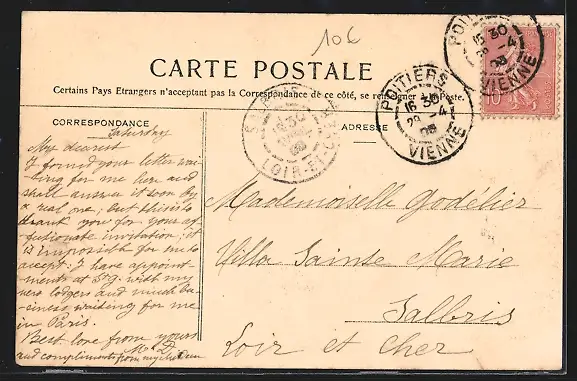 10€
CARTE POSTALE
Certains Pays Etrangers n'acceptant pas la Correspondance de ce côté, se renseigner à la Poste.
CORRESPONDANCE
Saturday
My dearest
I found your letter wai-
ting for me here and
shall answer it soon by
a real one, but this is to
thank you for your af
fectionate invitation: it
is impossible for me to
accept. I have appoint
ments at with my
new lodgers and much bu-
siness waiting for me
in Paris.
Best love from yours
and compliments from my
ADRESSE
Mademoiselle Godélier
Villa Sainte Marie
Salbris
Loir et Cher
POITIERS
16 30
29 -4
08
VIENNE
POITIERS
16 30
29 -4
08
VIENNE
LOIR-ET-CHER
10